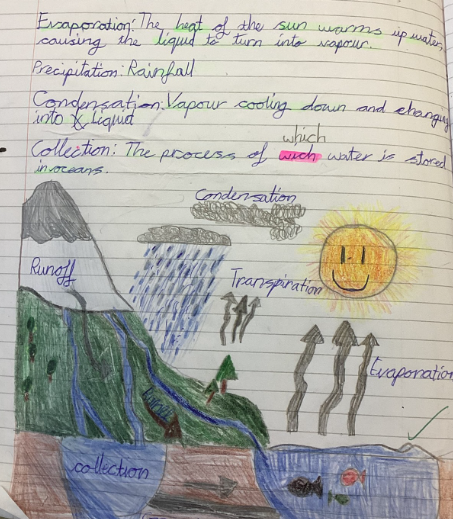 Evaporation: The heat of the sun warms up water,
causing the liquid to turn into vapour.
Precipitation: Rainfall
Condensation: Vapour cooling down and changing
into liquid
which
Collection: The process of wich water is stored
in oceans.
Condensation
Runoff
Transpiration
Evaporation
collection